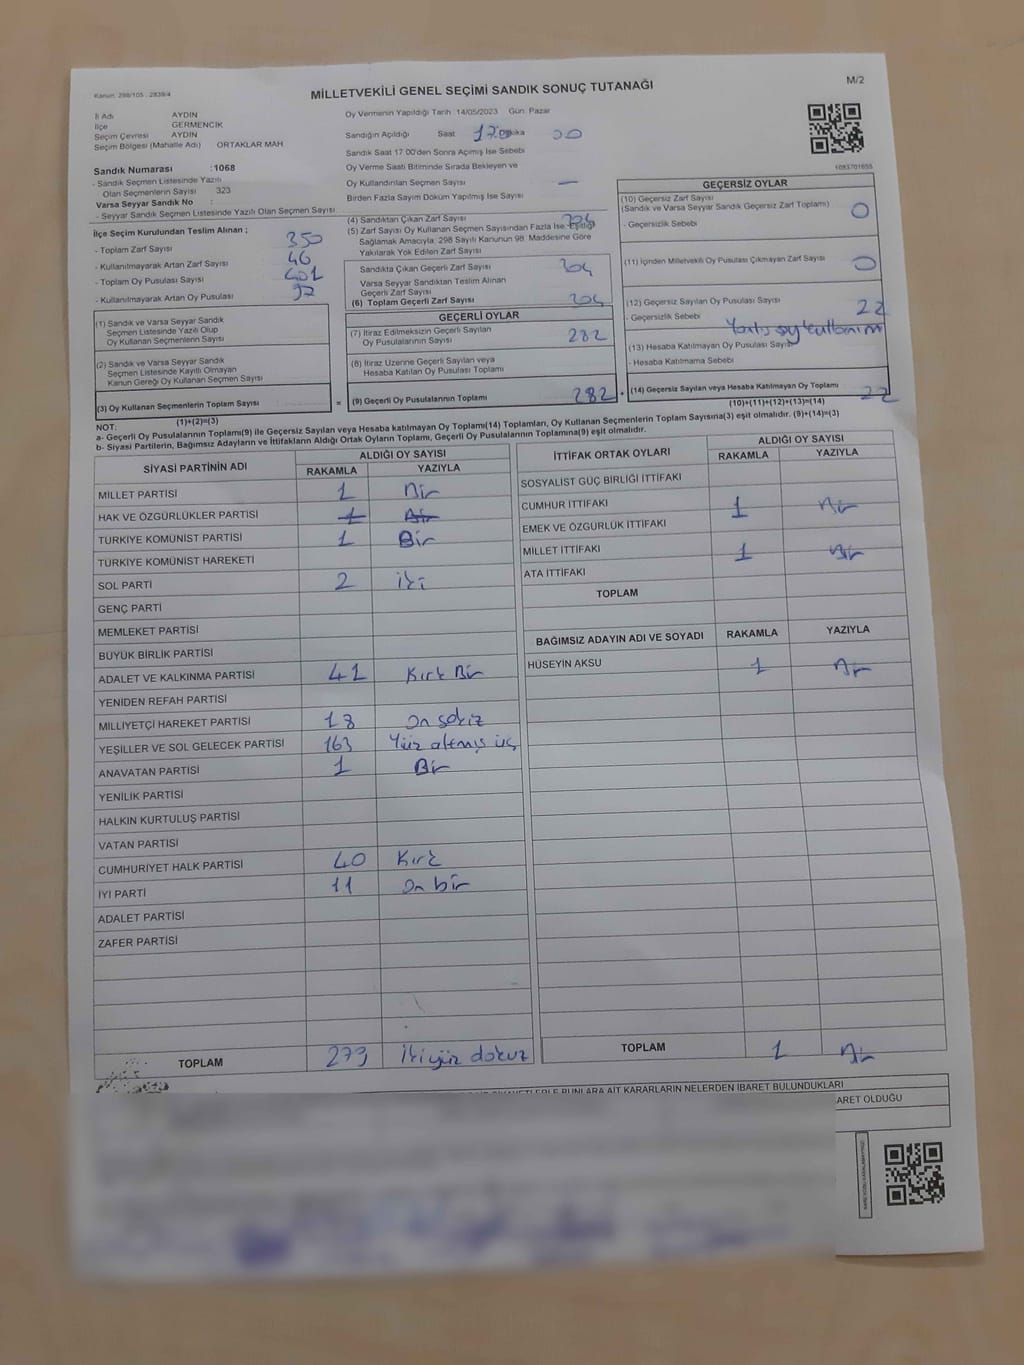 Kanun: 298/105 , 2839/4
MİLLETVEKİLİ GENEL SEÇİMİ SANDIK SONUÇ TUTANAĞI
M/2
İl Adı AYDIN
İlçe GERMENCİK
Seçim Çevresi AYDIN
Seçim Bölgesi (Mahalle Adı) ORTAKLAR MAH
Sandık Numarası :1068
- Sandık Seçmen Listesinde Yazılı
Olan Seçmenlerin Sayısı 323
Varsa Seyyar Sandık No :
- Seyyar Sandık Seçmen Listesinde Yazılı Olan Seçmen Sayısı
İlçe Seçim Kurulundan Teslim Alınan ;
- Toplam Zarf Sayısı 350
- Kullanılmayarak Artan Zarf Sayısı 46
- Toplam Oy Pusulası Sayısı 401
- Kullanılmayarak Artan Oy Pusulası 97
(1) Sandık ve Varsa Seyyar Sandık
Seçmen Listesinde Yazılı Olup
Oy Kullanan Seçmenlerin Sayısı
(2) Sandık ve Varsa Seyyar Sandık
Seçmen Listesinde Kayıtlı Olmayan
Kanun Gereği Oy Kullanan Seçmen Sayısı
(3) Oy Kullanan Seçmenlerin Toplam Sayısı =
(1)+(2)=(3)
Oy Vermenin Yapıldığı Tarih :14/05/2023 Gün: Pazar
Sandığın Açıldığı Saat 17:00 Dakika 00
Sandık Saat 17:00'den Sonra Açılmış İse Sebebi
Oy Verme Saati Bitiminde Sırada Bekleyen ve
Oy Kullandırılan Seçmen Sayısı —
Birden Fazla Sayım Döküm Yapılmış İse Sayısı
(4) Sandıktan Çıkan Zarf Sayısı 304
(5) Zarf Sayısı Oy Kullanan Seçmen Sayısından Fazla İse, Eşitliği
Sağlamak Amacıyla, 298 Sayılı Kanunun 98. Maddesine Göre
Yakılarak Yok Edilen Zarf Sayısı
Sandıkta Çıkan Geçerli Zarf Sayısı 304
Varsa Seyyar Sandıktan Teslim Alınan
Geçerli Zarf Sayısı
(6) Toplam Geçerli Zarf Sayısı 304
GEÇERLİ OYLAR
(7) İtiraz Edilmeksizin Geçerli Sayılan
Oy Pusulalarının Sayısı 282
(8) İtiraz Üzerine Geçerli Sayılan veya
Hesaba Katılan Oy Pusulası Toplamı
(9) Geçerli Oy Pusulalarının Toplamı 282 +
1083701655
GEÇERSİZ OYLAR
(10) Geçersiz Zarf Sayısı
(Sandık ve Varsa Seyyar Sandık Geçersiz Zarf Toplamı) 0
- Geçersizlik Sebebi
(11) İçinden Milletvekili Oy Pusulası Çıkmayan Zarf Sayısı 0
(12) Geçersiz Sayılan Oy Pusulası Sayısı 22
- Geçersizlik Sebebi Yanlış oy kullanım
(13) Hesaba Katılmayan Oy Pusulası Sayısı
- Hesaba Katılmama Sebebi
(14) Geçersiz Sayılan veya Hesaba Katılmayan Oy Toplamı 22
(10)+(11)+(12)+(13)=(14)
NOT:
a- Geçerli Oy Pusulalarının Toplamı(9) ile Geçersiz Sayılan veya Hesaba katılmayan Oy Toplamı(14) Toplamları, Oy Kullanan Seçmenlerin Toplam Sayısına(3) eşit olmalıdır. (9)+(14)=(3)
b- Siyasi Partilerin, Bağımsız Adayların ve İttifakların Aldığı Ortak Oyların Toplamı, Geçerli Oy Pusulalarının Toplamına(9) eşit olmalıdır.
SİYASİ PARTİNİN ADI ALDIĞI OY SAYISI
RAKAMLA YAZIYLA
MİLLET PARTİSİ 1 Bir
HAK VE ÖZGÜRLÜKLER PARTİSİ 1 Bir
TÜRKİYE KOMÜNİST PARTİSİ 1 Bir
TÜRKİYE KOMÜNİST HAREKETİ
SOL PARTİ 2 iki
GENÇ PARTİ
MEMLEKET PARTİSİ
BÜYÜK BİRLİK PARTİSİ
ADALET VE KALKINMA PARTİSİ 41 Kırk Bir
YENİDEN REFAH PARTİSİ
MİLLİYETÇİ HAREKET PARTİSİ 18 on sekiz
YEŞİLLER VE SOL GELECEK PARTİSİ 163 Yüz altmış üç
ANAVATAN PARTİSİ 1 Bir
YENİLİK PARTİSİ
HALKIN KURTULUŞ PARTİSİ
VATAN PARTİSİ
CUMHURİYET HALK PARTİSİ 40 Kırk
İYİ PARTİ 11 on bir
ADALET PARTİSİ
ZAFER PARTİSİ
TOPLAM 279 ikiyüz dokuz
İTTİFAK ORTAK OYLARI ALDIĞI OY SAYISI
RAKAMLA YAZIYLA
SOSYALİST GÜÇ BİRLİĞİ İTTİFAKI
CUMHUR İTTİFAKI 1 Bir
EMEK VE ÖZGÜRLÜK İTTİFAKI
MİLLET İTTİFAKI 1 Bir
ATA İTTİFAKI
TOPLAM
BAĞIMSIZ ADAYIN ADI VE SOYADI RAKAMLA YAZIYLA
HÜSEYİN AKSU 1 Bir
TOPLAM 1 Bir
BUNLARA AİT KARARLARIN NELERDEN İBARET BULUNDUKLARI
OLDUĞU